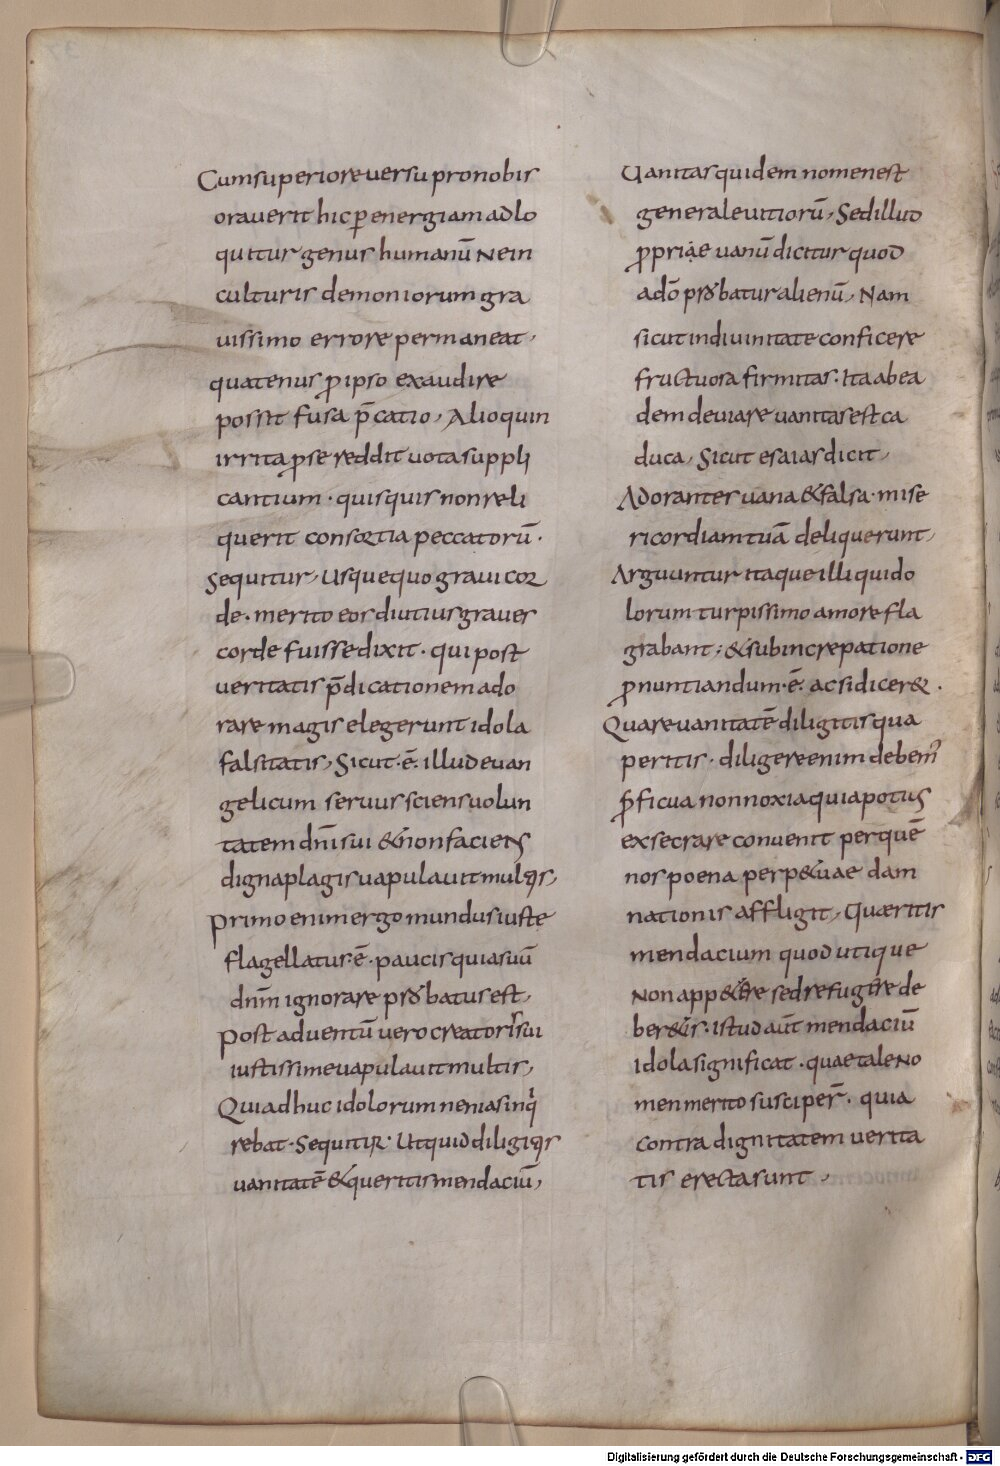 Cum superiore uersu pro nobis
orauerit hic ꝑ energiam adlo
quitur genus humanū Ne in
culturis demoniorum gra
uissimo errore permaneat,
quatenus ꝓ ipso exaudire
possit fusa p̄catio, Alioquin
irrita ꝑ se reddit uota suppli
cantium · quisquis non reli
querit consortia peccatorū ·
Sequitur, Usquequo graui cor
de · merito eos diutius graues
corde fuisse dixit · qui post
ueritatis p̄dicationem ado
rare magis elegerunt idola
falsitatis, Sicut · ē · illud euan
gelicum seruus sciens uolun
tatem dn̄i sui & non faciens
digna plagis uapulauit multis,
Primo enim ergo mundus iuste
flagellatus · ē · paucis quia suū
dn̄m ignorare probatus est,
Post aduentū uero creatoris sui
iustissime uapulauit multis,
Qui adhuc idolorum nenias inq
rebat · Sequitur · Ut quid diligitis
uanitatē & queritis mendaciū,
Uanitas quidem nomen est
generale uitiorū, Sed illud
ꝓpriae uanū dicitur quod
a dō probatur alienū, Nam
sicut in diuinitate conficere
fructuosa firmitas · Ita ab ea
dem deuiare uanitas est ca
duca, Sicut esaias dicit,
Adorantes uana & falsa · mise
ricordiam tuā deliquerunt,
Arguuntur itaque illi qui do
lorum turpissimo amore fla
grabant; & sub increpatione
ꝓnuntiandum · ē · ac si dicer& ·
Quare uanitatē diligitis qua
peritis · diligere enim debem'
ꝓficua non noxia quia potius
exsecrare conuenit per quē
nos poena perp&uae dam
nationis affligit, Quaeritis
mendacium quod utique
Non app&ere sed refugere de
ber&is · istud aūt mendaciū
idola significat · quae tale No
men merito susciper̄ · quia
contra dignitatem uerita
tis erecta sunt,
Digitalisierung gefördert durch die Deutsche Forschungsgemeinschaft - DFG